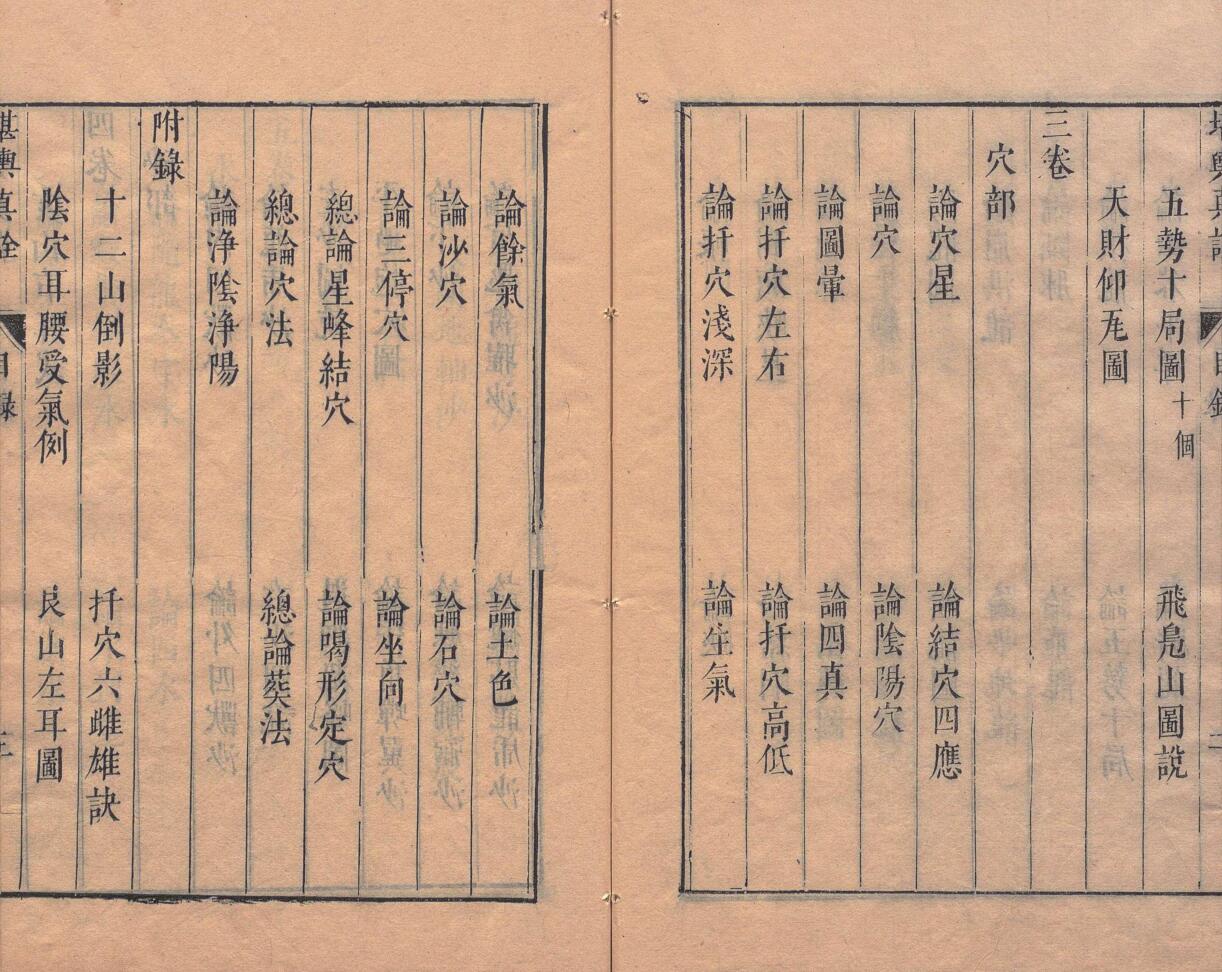 五勢十局圖十個 飛鳬山圖說
天財仰瓦圖
三卷
穴部
論穴星 論結穴四應
論穴 論陰陽穴
論圖暈 論四真
論扦穴左右 論扦穴高低
論扦穴淺深 論生氣
論餘氣 論土色
論沙穴 論石穴
論三停穴 論坐向
總論星峰結穴 論喝形定穴
總論穴法 總論葬法
論浄陰浄陽
附錄
十二山倒影 扦穴六雌雄訣
陰穴耳腰受氣例 艮山左耳圖
堪輿真詮 目錄 三